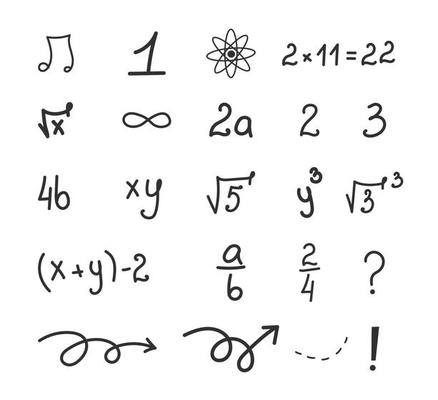 1 2×11=22
√x ∞ 2a 2 3
4b xy √5 y³ √3³
(x+y)-2 a/b 2/4 ?
!